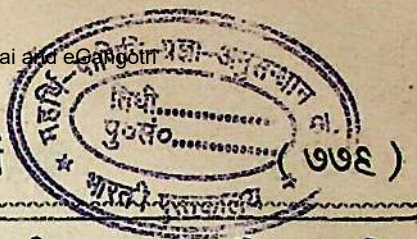 ai and eGangotri
महर्षि-पाणिनि-प्रज्ञा-अनुसन्धान
तिथी..............
पु०सं०..............
( ७७३ )
भारती पुस्तकालय